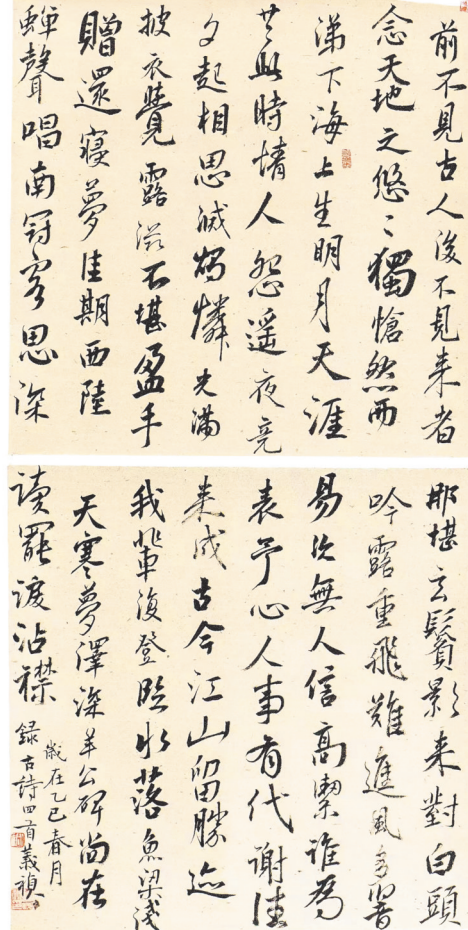 前不見古人後不見来者
念天地之悠〻獨愴然而
涕下海上生明月天涯
共此時情人怨遥夜竟
夕起相思滅燭憐光滿
披衣覺露滋不堪盈手
贈還寢夢佳期西陸
蟬聲唱南冠客思深
那堪玄鬢影来對白頭
吟露重飛難進風多響
易沉無人信高潔誰為
表予心人事有代謝往
来成古今江山留勝迹
我輩復登臨水落魚梁淺
天寒夢澤深羊公碑尚在
讀罷淚沾襟
歲在乙巳春月
錄古詩四首義禎